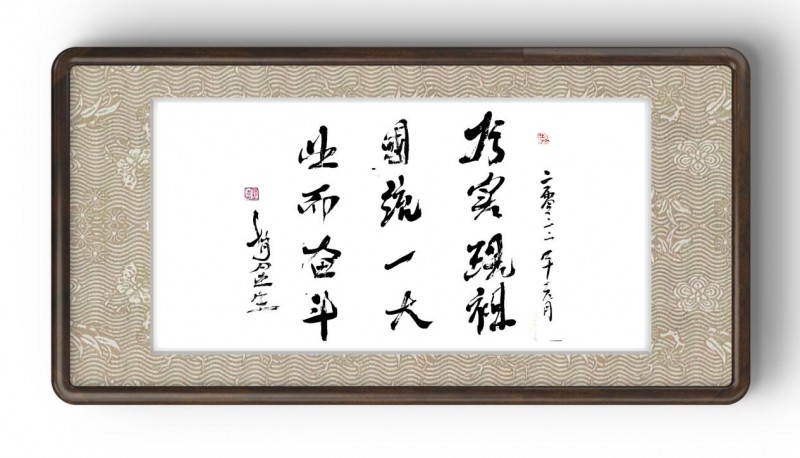 二零二二年元月
为实现祖
國统一大
业而奋斗